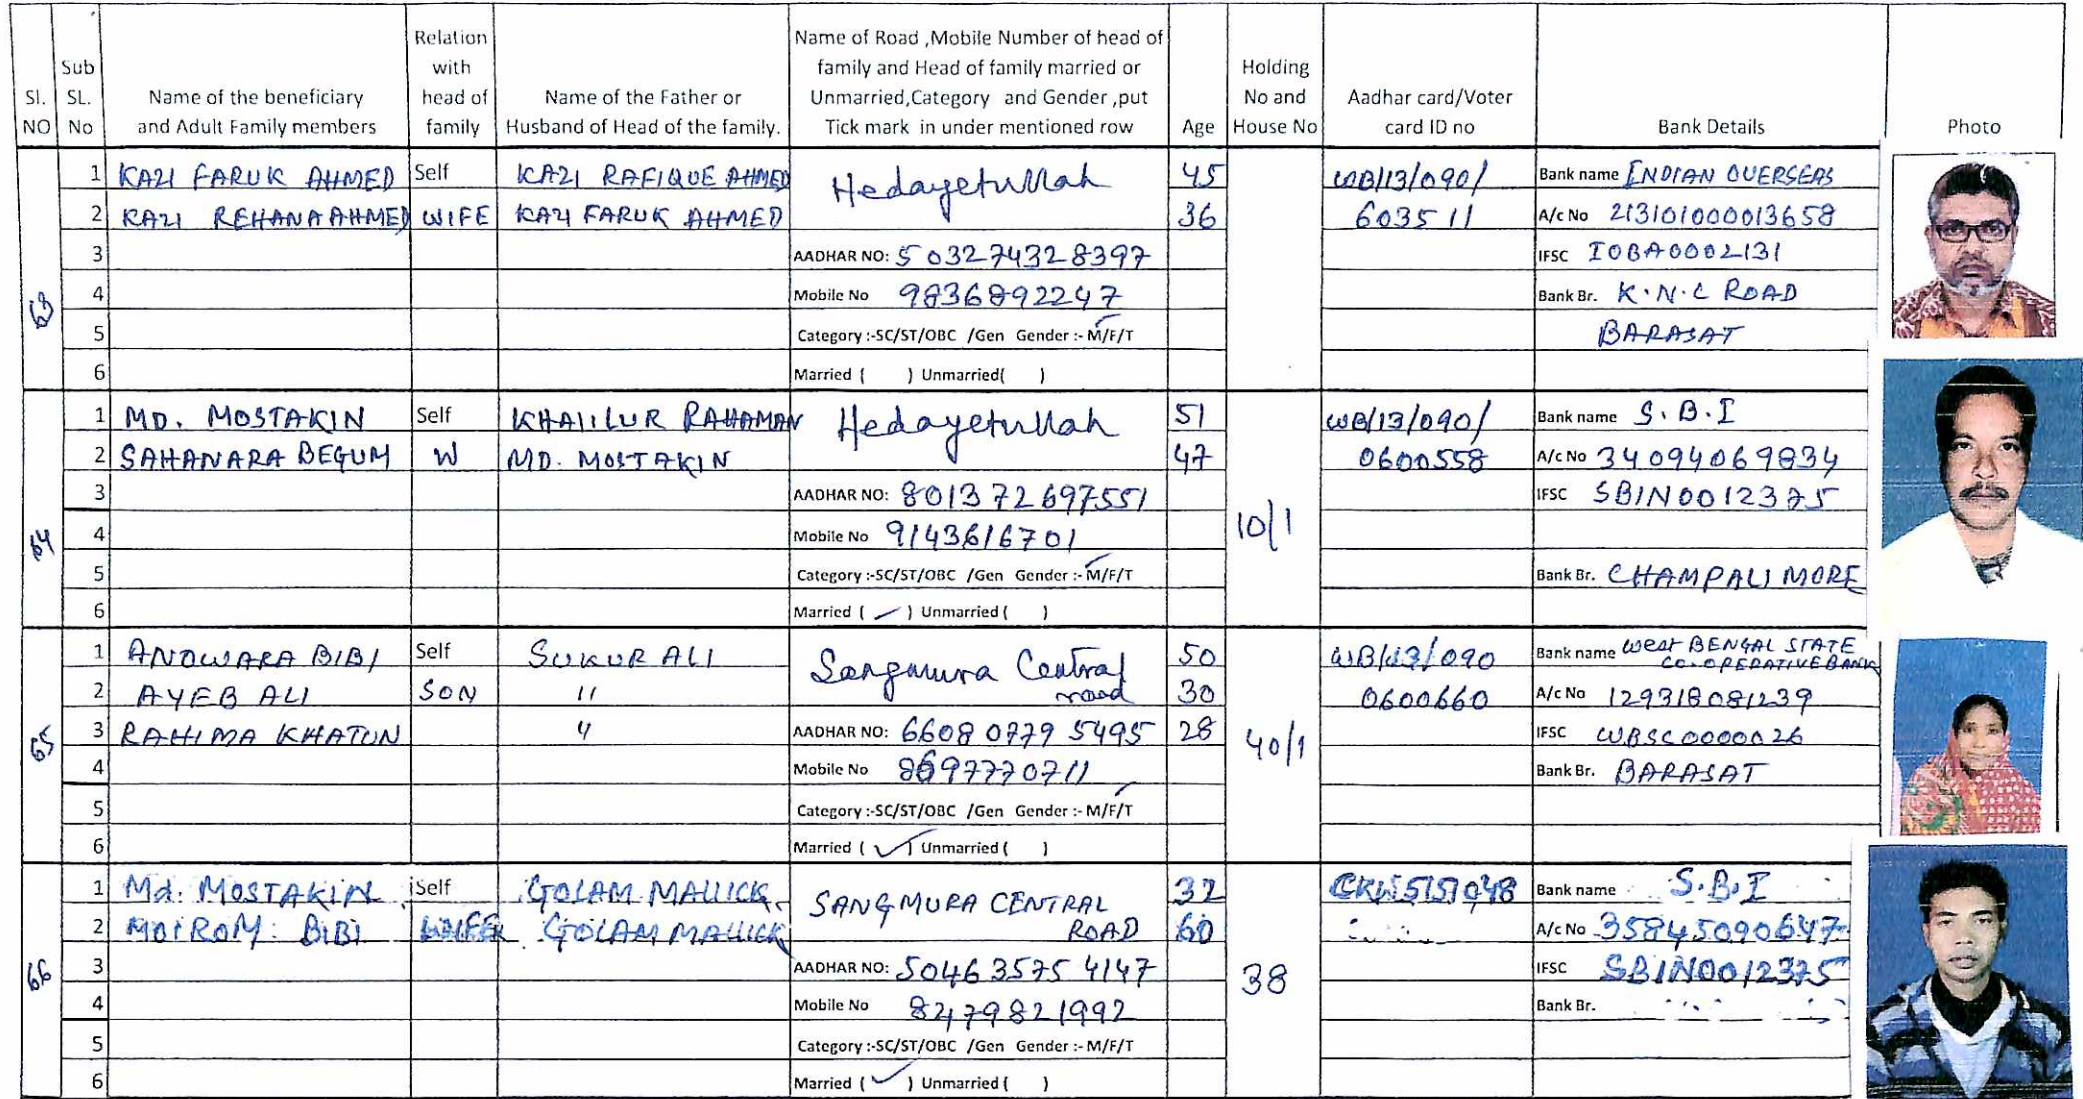 Sl. NO
Sub SL. No
Name of the beneficiary and Adult Family members
Relation with head of family
Name of the Father or Husband of Head of the family.
Name of Road ,Mobile Number of head of family and Head of family married or Unmarried,Category and Gender ,put Tick mark in under mentioned row
Age
Holding No and House No
Aadhar card/Voter card ID no
Bank Details
Photo
63
1 KAZI FARUK AHMED Self KAZI RAFIQUE AHMED Hedayetullah 45 WB/13/090/ Bank name INDIAN OVERSEAS
2 KAZI REHANA AHMED WIFE KAZI FARUK AHMED 36 603511 A/c No 213101000013658
3 AADHAR NO: 503274328397 IFSC IOBA0002131
4 Mobile No 9836892247 Bank Br. K.N.C ROAD
5 Category :-SC/ST/OBC /Gen Gender :- M/F/T BARASAT
6 Married ( ) Unmarried( )
64
1 MD. MOSTAKIN Self KHALILUR RAHAMAN Hedayetullah 51 WB/13/090/ Bank name S.B.I
2 SAHANARA BEGUM W MD. MOSTAKIN 47 0600558 A/c No 34094069834
3 AADHAR NO: 801372697551 IFSC SBIN0012375
4 Mobile No 9143616701 10/1
5 Category :-SC/ST/OBC /Gen Gender :- M/F/T Bank Br. CHAMPALI MORE
6 Married ( ✓ ) Unmarried ( )
65
1 ANOWARA BIBI Self SUKUR ALI Sangmura Central road 50 WB/13/090 Bank name West BENGAL STATE CO-OPERATIVE BANK
2 AYEB ALI SON 11 30 0600660 A/c No 129318081239
3 RAHIMA KHATUN 4 AADHAR NO: 66080779 5495 28 40/1 IFSC WBSC0000026
4 Mobile No 8697770711 Bank Br. BARASAT
5 Category :-SC/ST/OBC /Gen Gender :- M/F/T
6 Married ( ✓ ) Unmarried ( )
66
1 Md. MOSTAKIN Self GOLAM MALLICK SANGMURA CENTRAL ROAD 32 Bank name S.B.I
2 MOIROM BIBI GOLAM MALLICK 60 A/c No 35845090647
3 AADHAR NO: 50463575 4147 38 IFSC SBIN0012375
4 Mobile No 8279821992 Bank Br.
5 Category :-SC/ST/OBC /Gen Gender :- M/F/T
6 Married ( ✓ ) Unmarried ( )